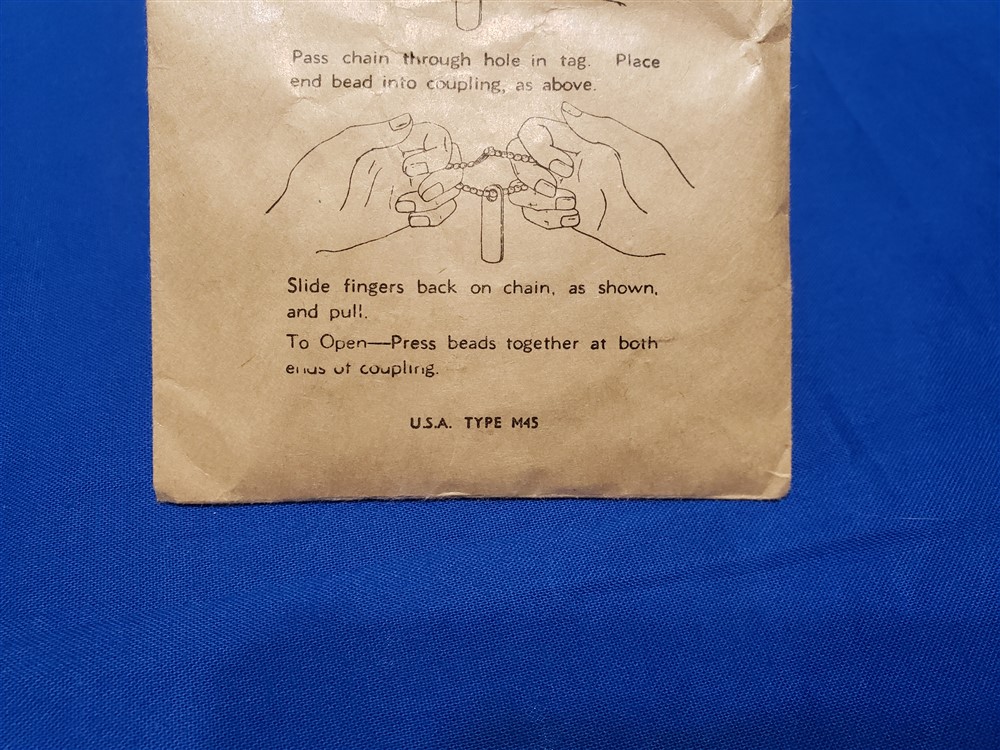 Pass chain through hole in tag. Place
end bead into coupling, as above.
Slide fingers back on chain, as shown,
and pull.
To Open—Press beads together at both
ends of coupling.
U.S.A. TYPE M45